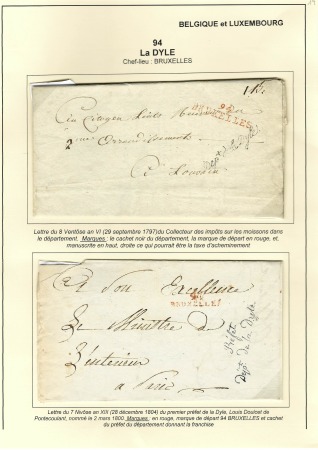 BELGIQUE et LUXEMBOURG
94
La DYLE
Chef-lieu : BRUXELLES
94
BRUXELLES
Lettre du 8 Ventôse an VI (29 septembre 1797)du Collecteur des impôts sur les moissons dans
le département. Marques : le cachet noir du département, la marque de départ en rouge, et,
manuscrite en haut, droite ce qui pourrait être la taxe d'acheminement
A Son Excellence
94
BRUXELLES
Le Ministre de
Préfet
Dépt de la Dyle
L'intérieur
a Paris
Lettre du 7 Nivôse an XIII (28 décembre 1804) du premier préfet de la Dyle, Louis Doulcet de
Pontecoulant, nommé le 2 mars 1800. Marques : en rouge, marque de départ 94 BRUXELLES et cachet
du préfet du département donnant la franchise